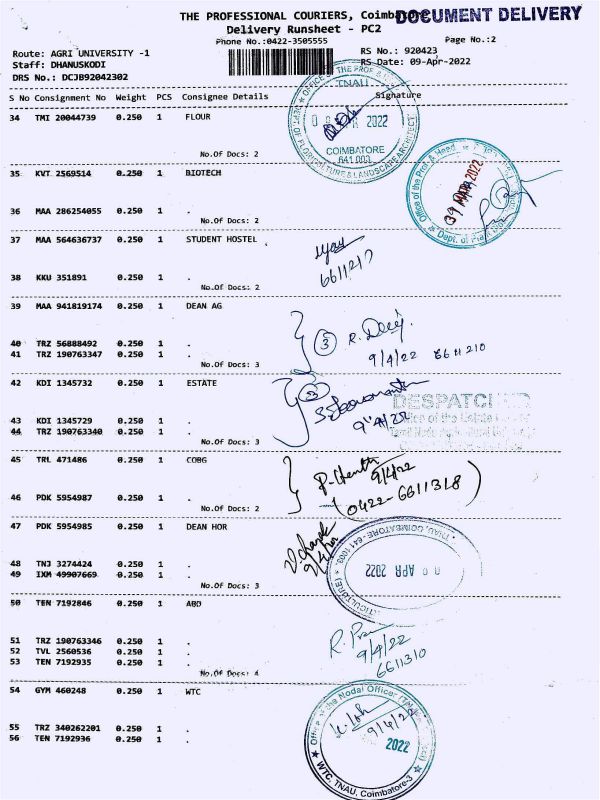 THE PROFESSIONAL COURIERS, Coimbatore
DOCUMENT DELIVERY
Delivery Runsheet - PC2
Phone No.:0422-3505555
Page No.:2
Route: AGRI UNIVERSITY -1
RS No.: 920423
Staff: DHANUSKODI
RS Date: 09-Apr-2022
DRS No.: DCJB92042302
S No Consignment No Weight PCS Consignee Details Signature
34 TMI 20044739 0.250 1 FLOUR
No.Of Docs: 2
OFFICE OF THE PROF &
TNAU
2022
COIMBATORE
641 003
DEPT. OF FLORICULTURE & LANDSCAPE ARCHITECT
35 KVT 2569514 0.250 1 BIOTECH
36 MAA 286254055 0.250 1 .
No.Of Docs: 2
Office of the Prof. & Head
2022
Dept. of Plant
37 MAA 564636737 0.250 1 STUDENT HOSTEL
38 KKU 351891 0.250 1 .
No.Of Docs: 2
39 MAA 941819174 0.250 1 DEAN AG
40 TRZ 56888492 0.250 1 .
41 TRZ 190763347 0.250 1 .
No.Of Docs: 3
3
9/4/22 6611210
42 KDI 1345732 0.250 1 ESTATE
43 KDI 1345729 0.250 1 .
44 TRZ 190763340 0.250 1 .
No.Of Docs: 3
2
DESPATCHED
Office of the Estate
45 TRL 471486 0.250 1 COBG
46 PDK 5954987 0.250 1 .
No.Of Docs: 2
9/4/22
(0422-6611318)
47 PDK 5954985 0.250 1 DEAN HOR
48 TNJ 3274424 0.250 1 .
49 IXM 49907669 0.250 1 .
No.Of Docs: 3
TNAU, COIMBATORE-641 003.
APR 2022
50 TEN 7192846 0.250 1 ABD
51 TRZ 190763346 0.250 1 .
52 TVL 2560536 0.250 1 .
53 TEN 7192935 0.250 1 .
No.Of Docs: 4
9/4/22
6611310
54 GYM 460248 0.250 1 WTC
55 TRZ 340262201 0.250 1 .
56 TEN 7192936 0.250 1 .
Office of the Nodal Officer
9/4/22
2022
WTC, TNAU, Coimbatore-3